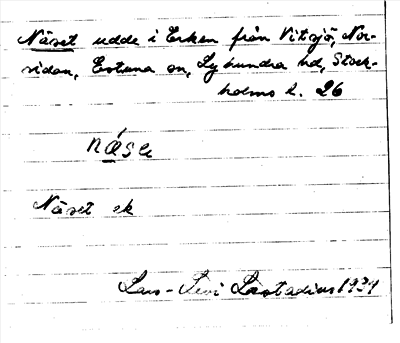 Näset udde i Erken från Vitsjö, Nor-
sidan, Estuna sn, Lyhundra hd, Stock-
holms l. 26
náse
Näset ek
Lars-Levi Læstadius 1934